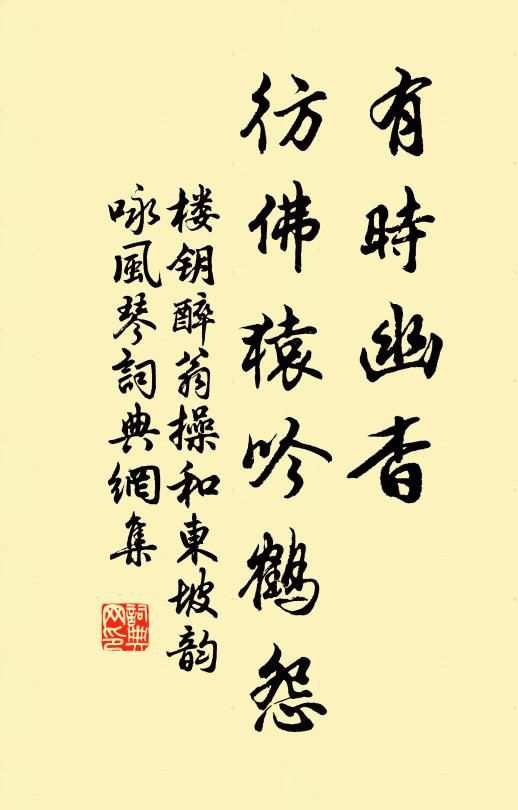 有時幽杳
彷佛猿吟鶴怨
楼钥醉翁操和東坡韵
咏風琴詞典網集
詞典网印